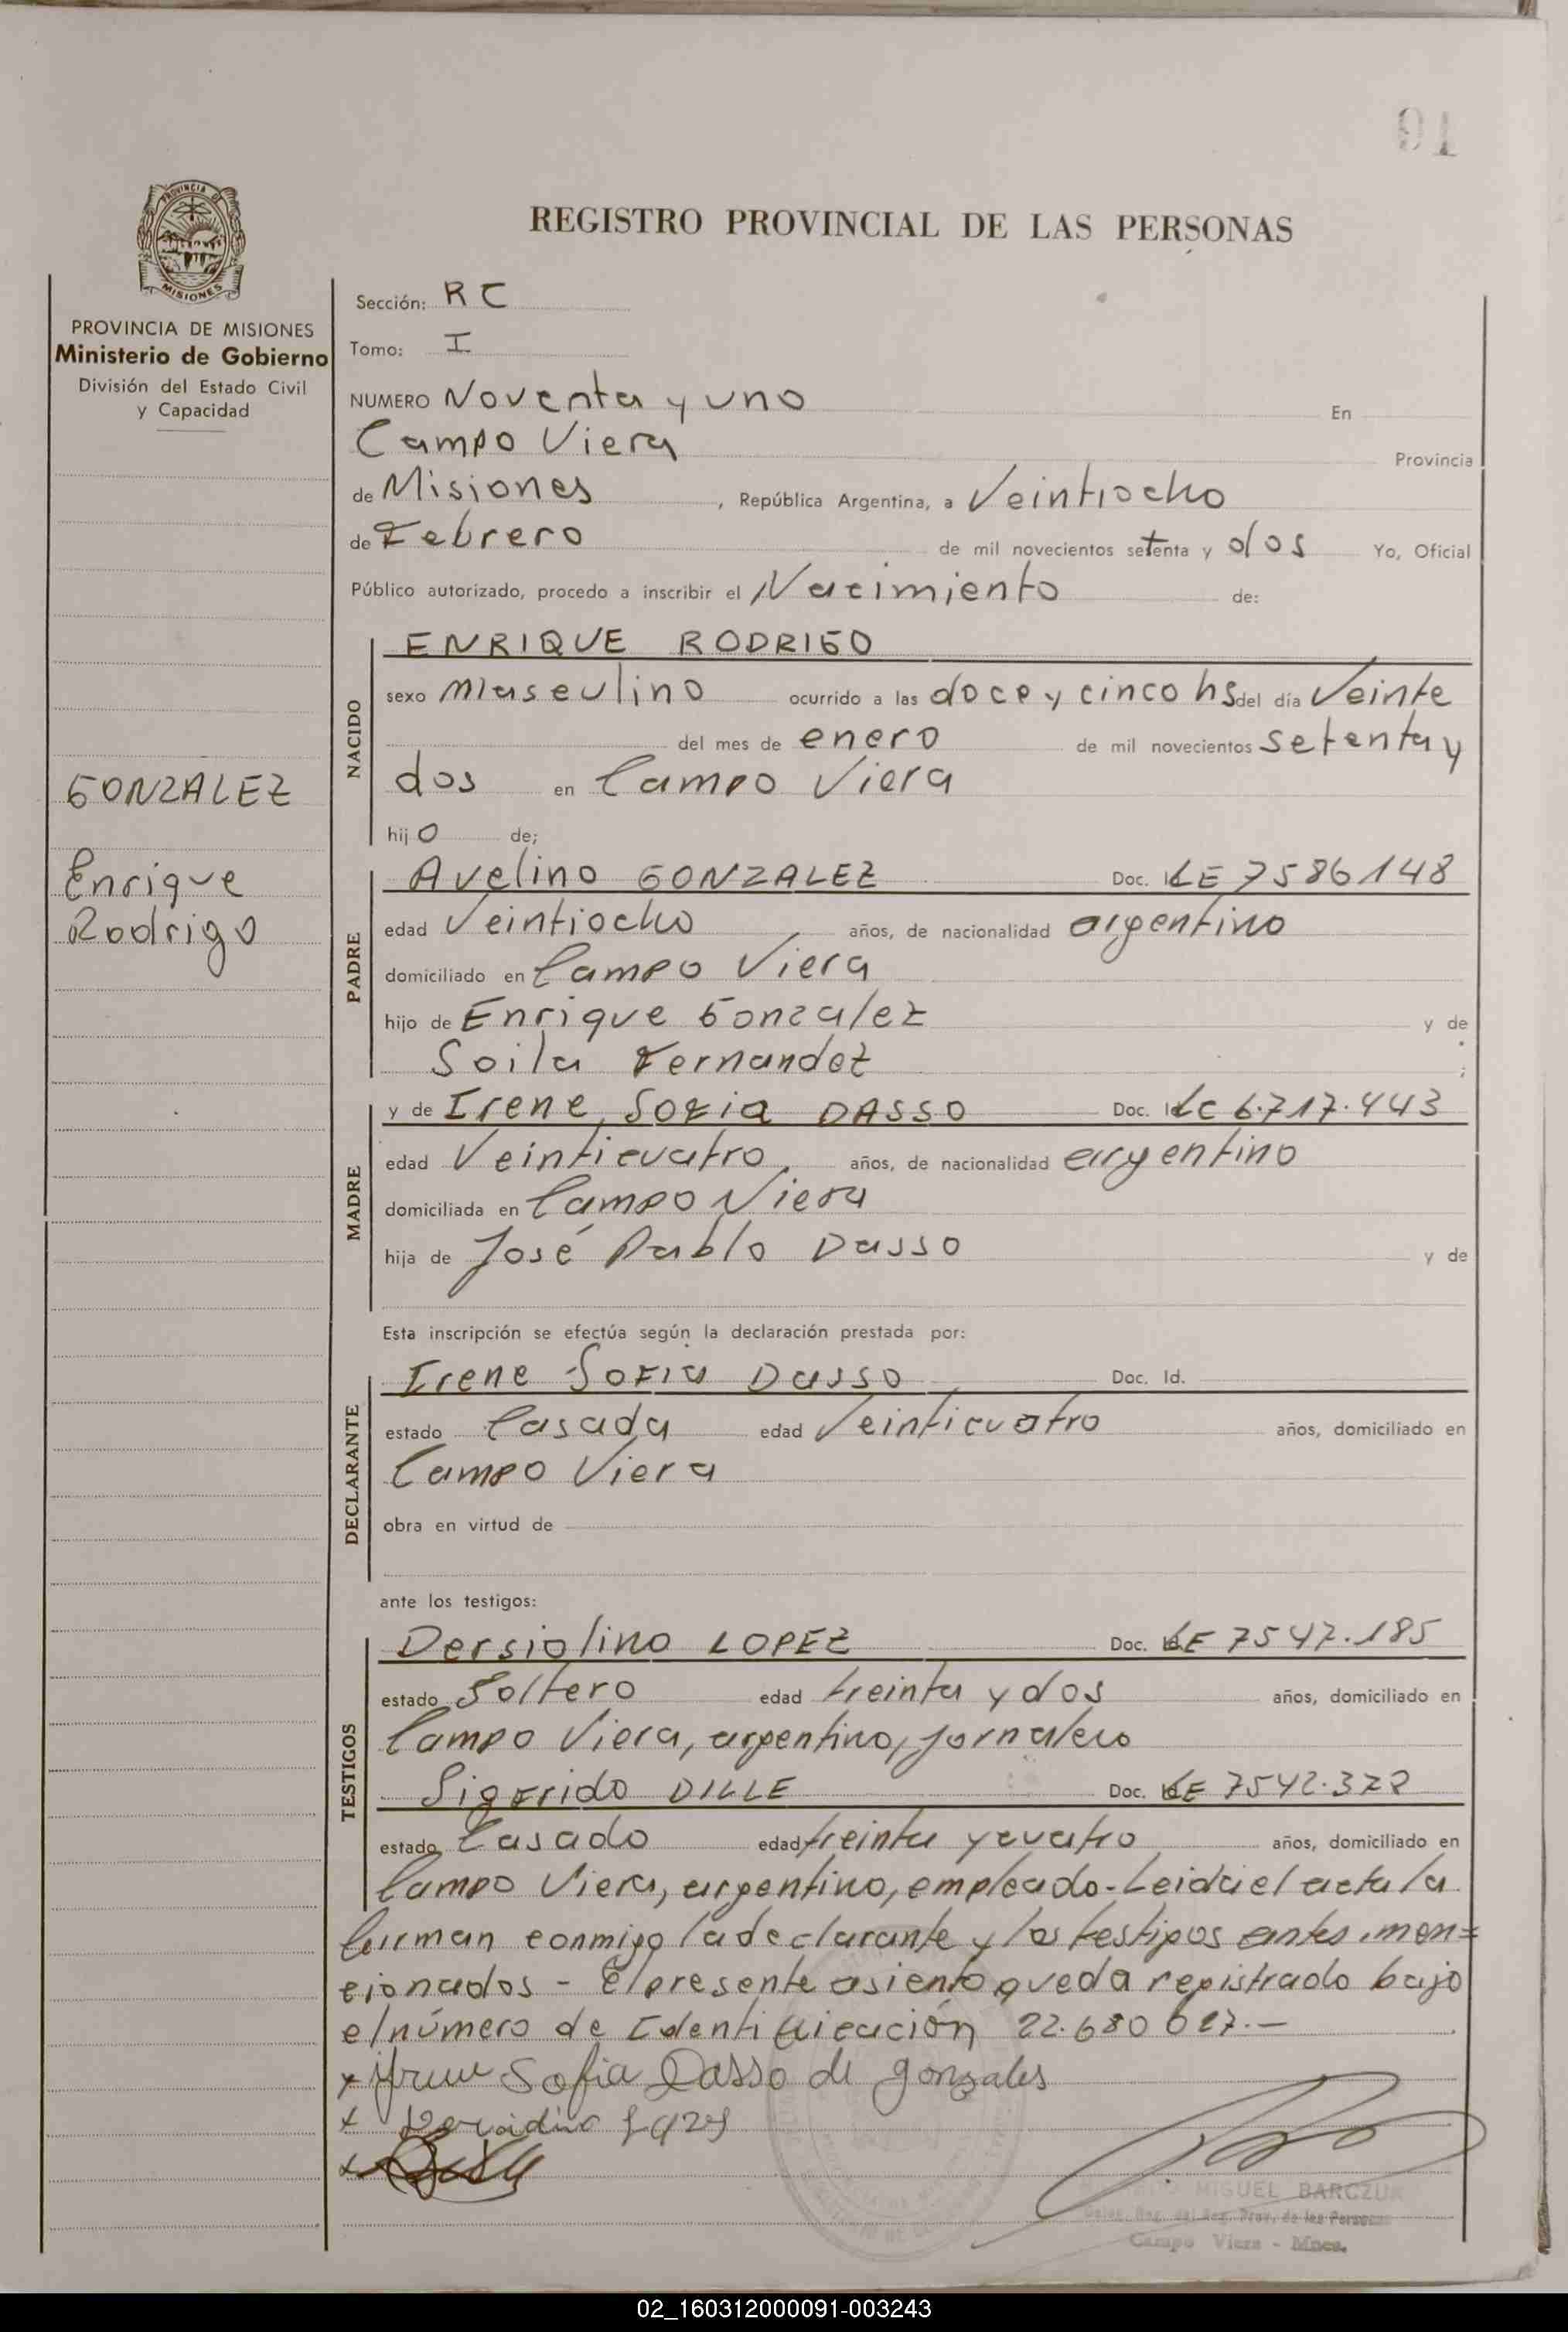 91
PROVINCIA DE
MISIONES
REGISTRO PROVINCIAL DE LAS PERSONAS
PROVINCIA DE MISIONES
Ministerio de Gobierno
División del Estado Civil
y Capacidad
GONZALEZ
Enrique
Rodrigo
Sección: RC
Tomo: I
NUMERO Noventa y uno En
Campo Viera Provincia
de Misiones, República Argentina, a Veintiocho
de Febrero de mil novecientos setenta y dos Yo, Oficial
Público autorizado, procedo a inscribir el Nacimiento de:
NACIDO
ENRIQUE RODRIGO
sexo masculino ocurrido a las doce y cinco hs del día Veinte
del mes de enero de mil novecientos setenta y
dos en Campo Viera
hijo de;
PADRE
Avelino GONZALEZ Doc. LE 7586148
edad Veintiocho años, de nacionalidad argentino
domiciliado en Campo Viera
hijo de Enrique Gonzalez y de
Soila Fernandez ;
MADRE
y de Irene Sofia DASSO Doc. LC 6.717.443
edad Veinticuatro años, de nacionalidad argentino
domiciliada en Campo Viera
hija de José Pablo Dasso y de
Esta inscripción se efectúa según la declaración prestada por:
DECLARANTE
Irene Sofia Dasso Doc. Id.
estado Casada edad Veinticuatro años, domiciliado en
Campo Viera
obra en virtud de
ante los testigos:
TESTIGOS
Dersiolino LOPEZ Doc. LE 7547.185
estado Soltero edad treinta y dos años, domiciliado en
Campo Viera, argentino, jornalero
Sigfrido DILLE Doc. LE 7542.372
estado Casado edad treinta y cuatro años, domiciliado en
Campo Viera, argentino, empleado - Leida el acta la
firman conmigo la declarante y los testigos antes men=
cionados - El presente asiento queda registrado bajo
el número de Identificación 22.680 617.-
x Sofia Dasso de gonzales
x
x
MIGUEL BARCZUK
Deleg. Reg. del Reg. Prov. de las Personas
Campo Viera - Mnes.
02_160312000091-003243